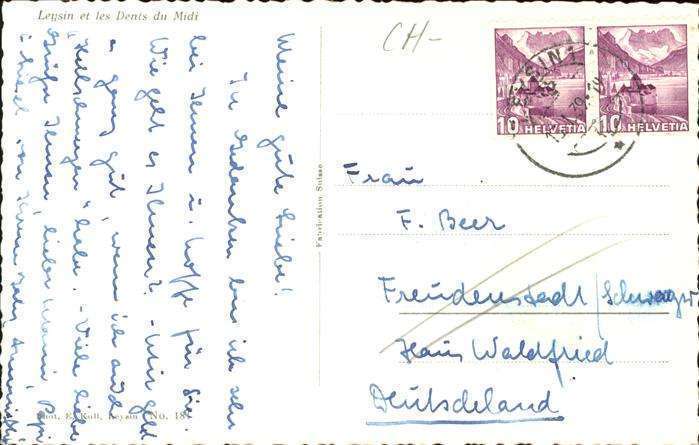 Leysin et les Dents du Midi
CH-
10 HELVETIA 10 HELVETIA
LEYSIN 1
Meine gute Liebe!
In Gedanken bin ich sehr
bei Ihnen u. hoffe für Sie.
Wie geht es Ihnen? - Mir geht
es ganz gut, wenn ich auch
habe. - Viele liebe
Grüße Ihnen, lieber
von Ihrer
Fabrication Suisse
Frau
F. Beer
Freudenstadt / Schwarzw
Haus Waldfried
Deutschland
Phot. E. Kull, Leysin No. 18